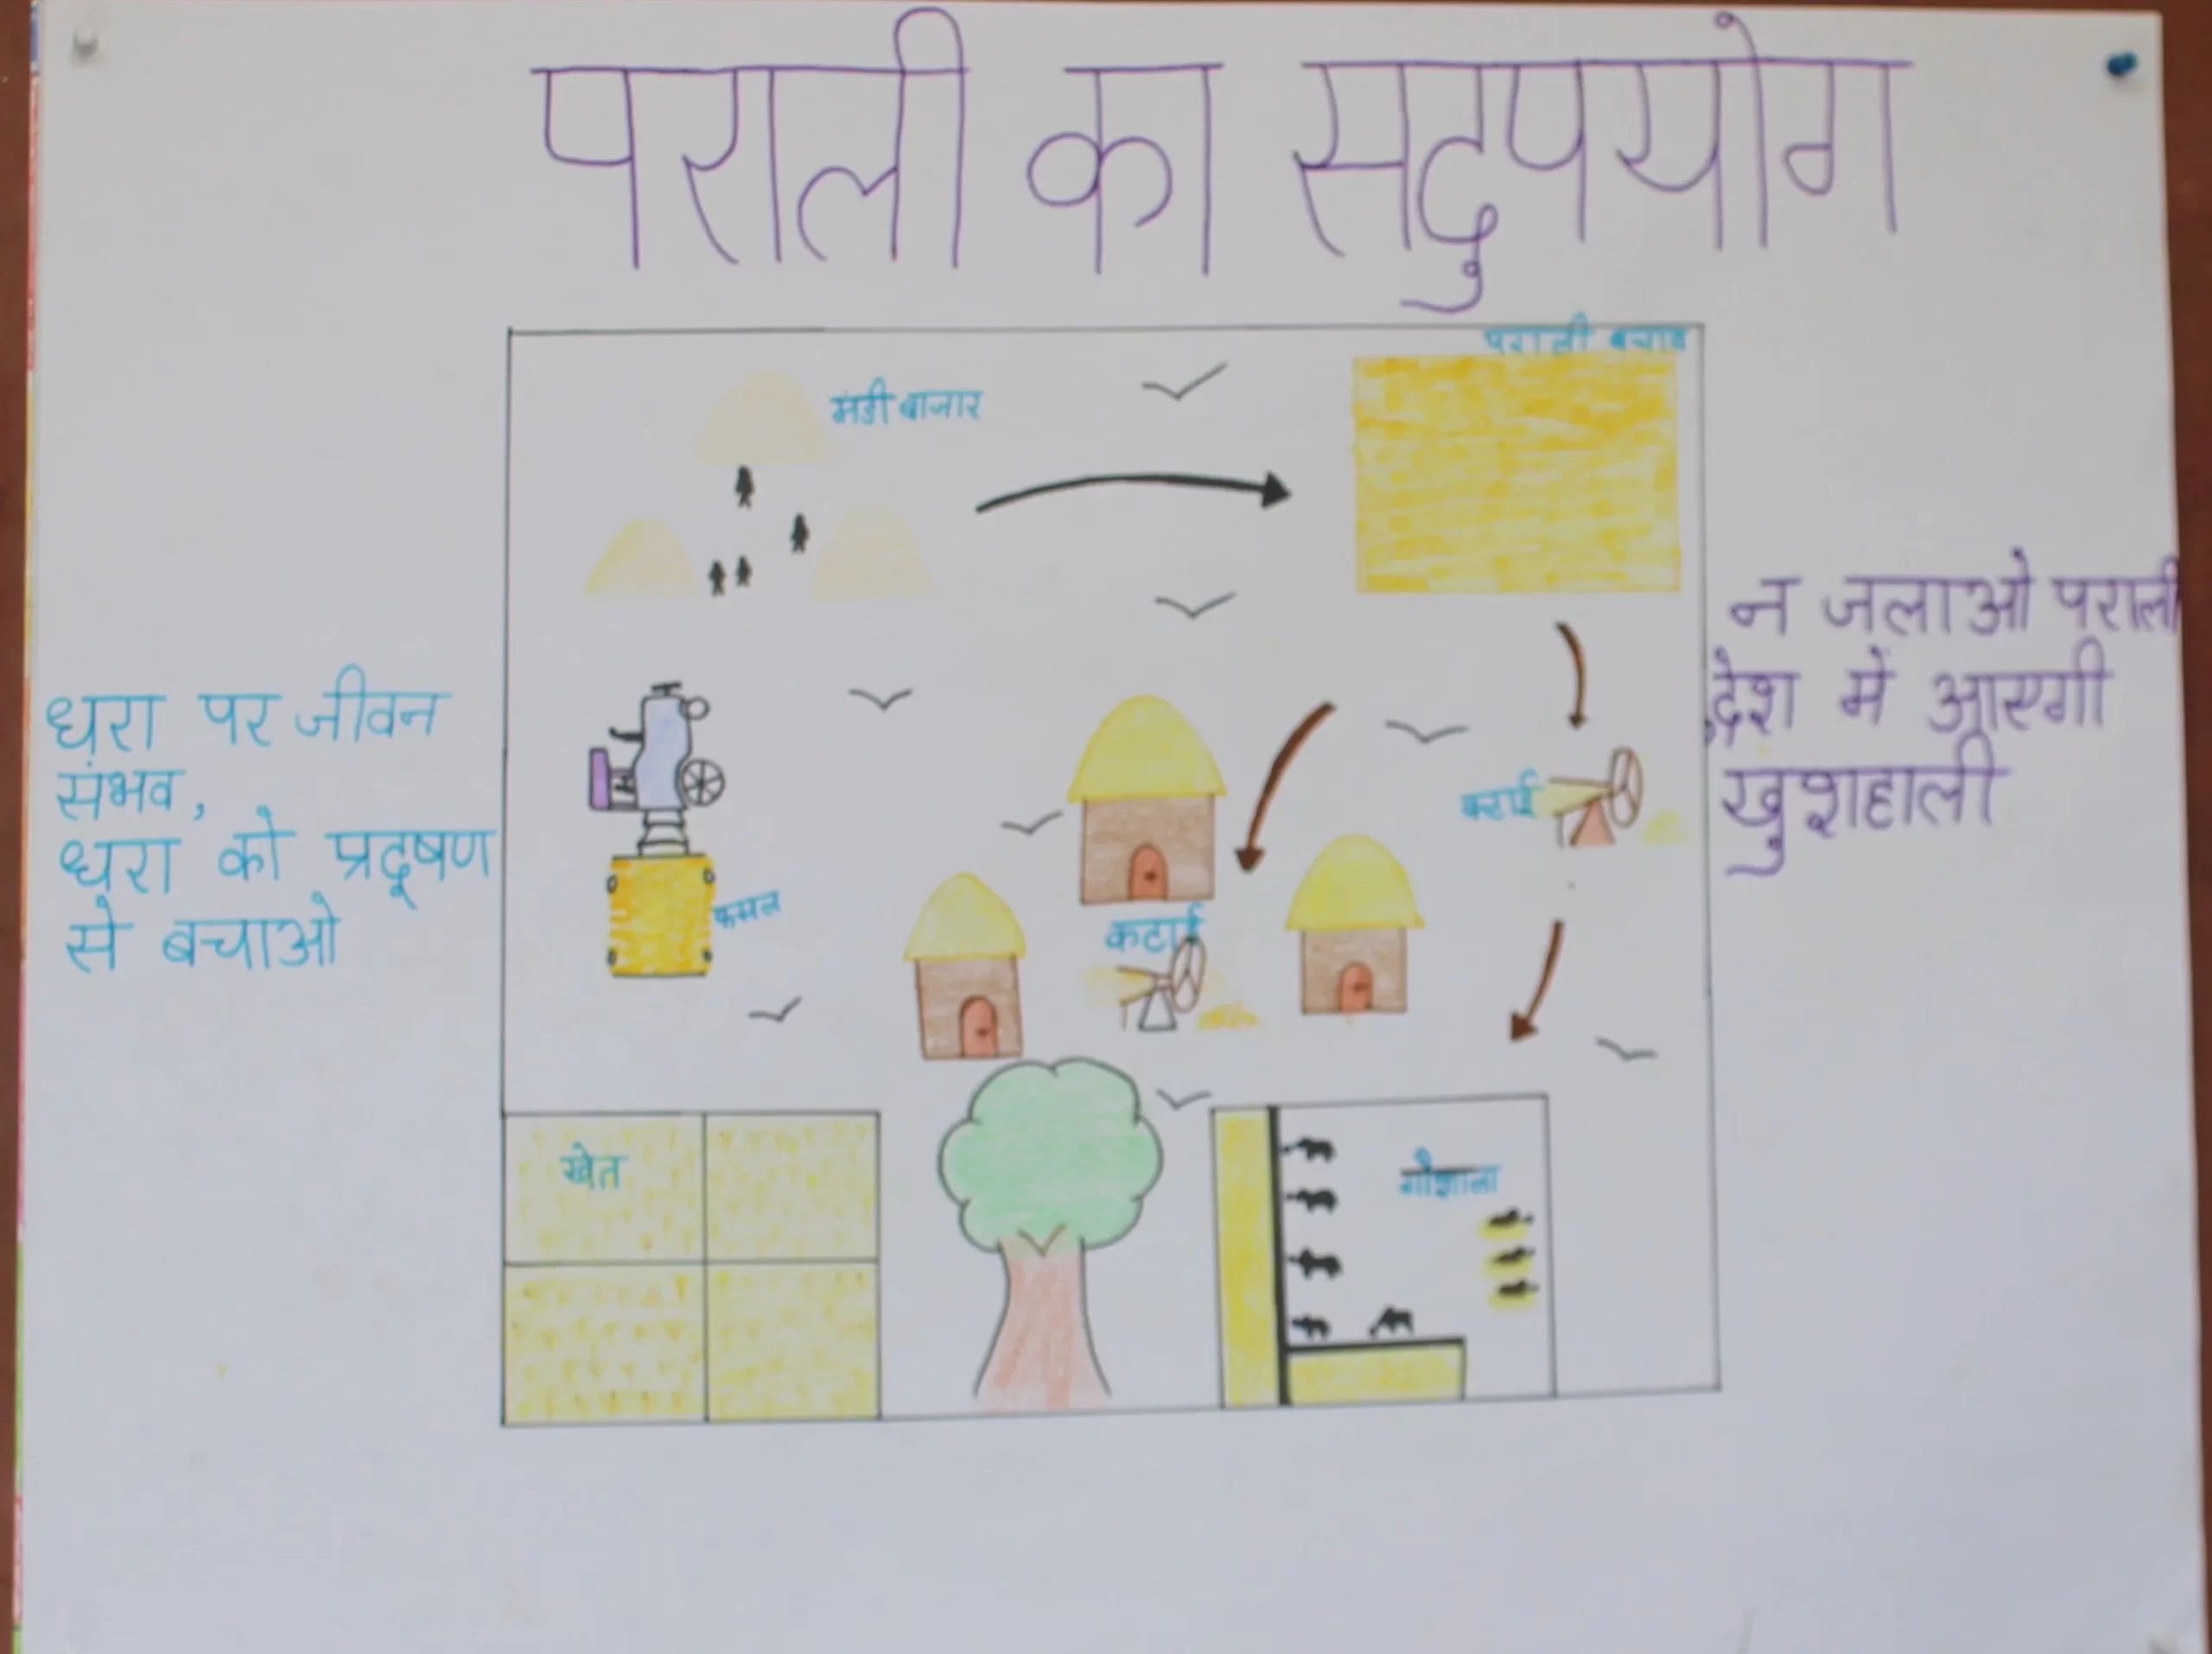 पराली का सदुपयोग
पराली बचाव
मंडी बाजार
न जलाओ पराली
देश में आएगी
खुशहाली
धरा पर जीवन
संभव,
धरा को प्रदूषण
से बचाओ
कटाई
फसल
कटाई
खेत
गौशाला